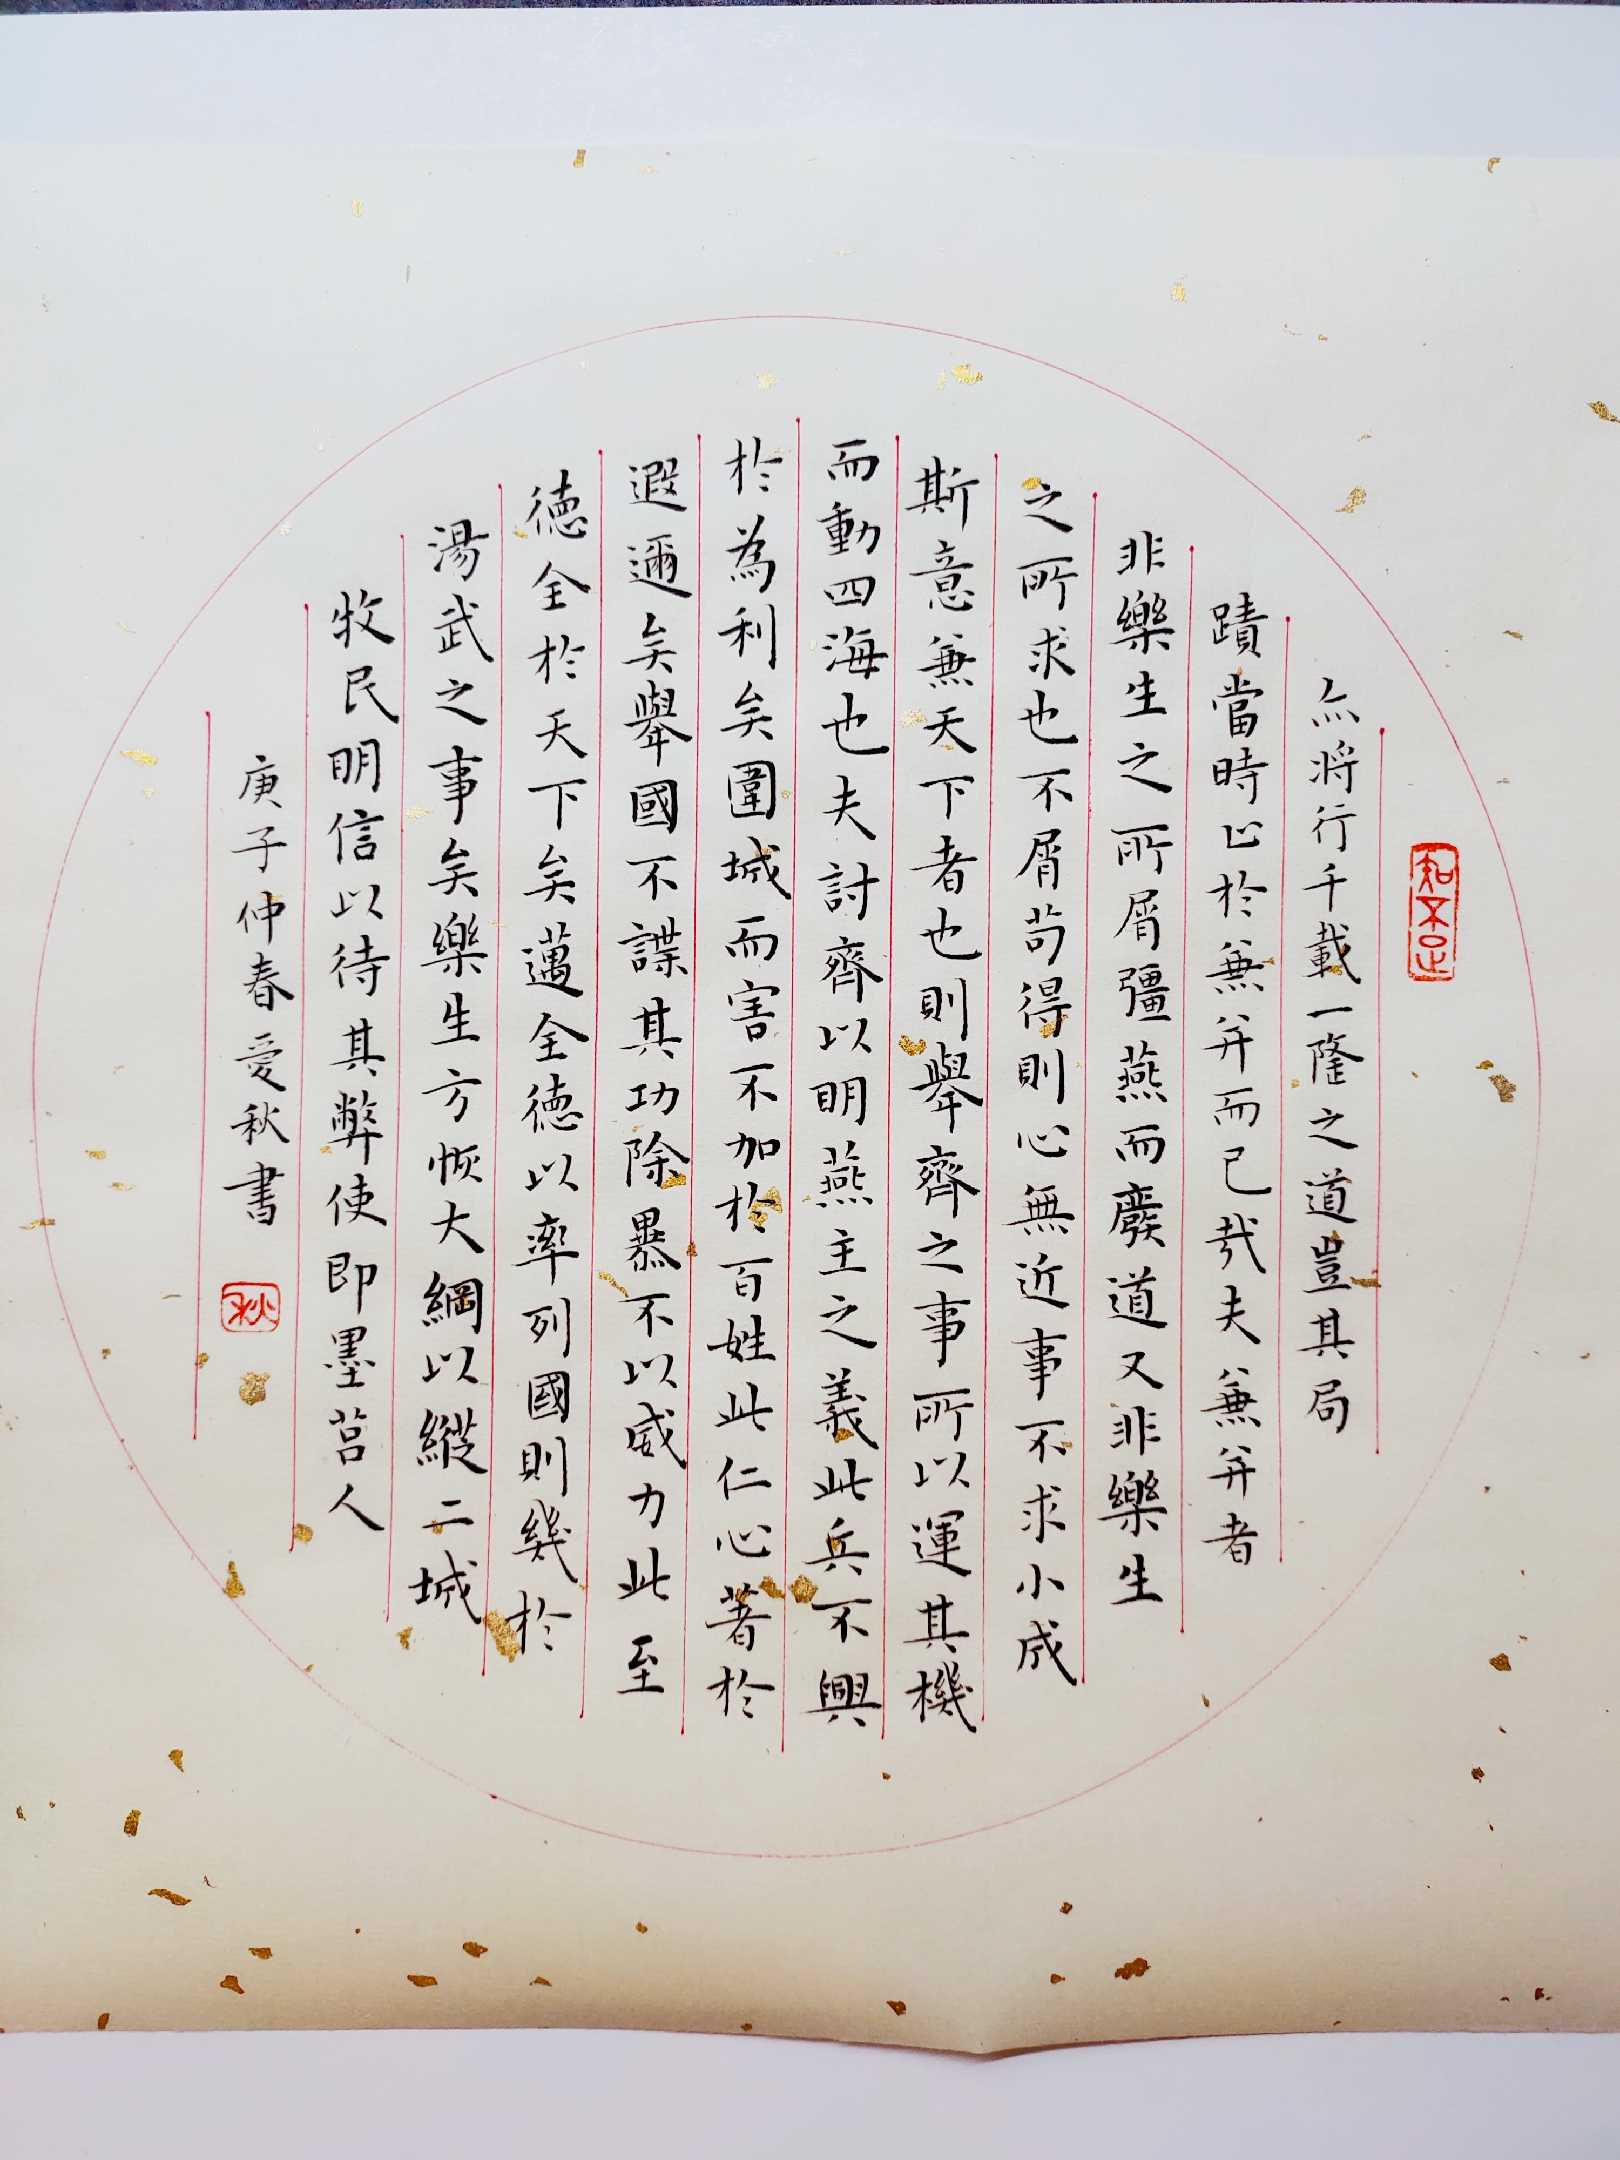 知不足
亦將行千載一隆之道豈其局
蹟當時止於兼并而已哉夫兼并者
非樂生之所屑彊燕而廢道又非樂生
之所求也不屑苟得則心無近事不求小成
斯意兼天下者也則舉齊之事所以運其機
而動四海也夫討齊以明燕主之義此兵不興
於為利矣圍城而害不加於百姓此仁心著於
遐邇矣舉國不謀其功除暴不以威力此至
德全於天下矣邁全德以率列國則幾於
湯武之事矣樂生方恢大綱以縱二城
牧民明信以待其弊使即墨莒人
庚子仲春愛秋書
秋